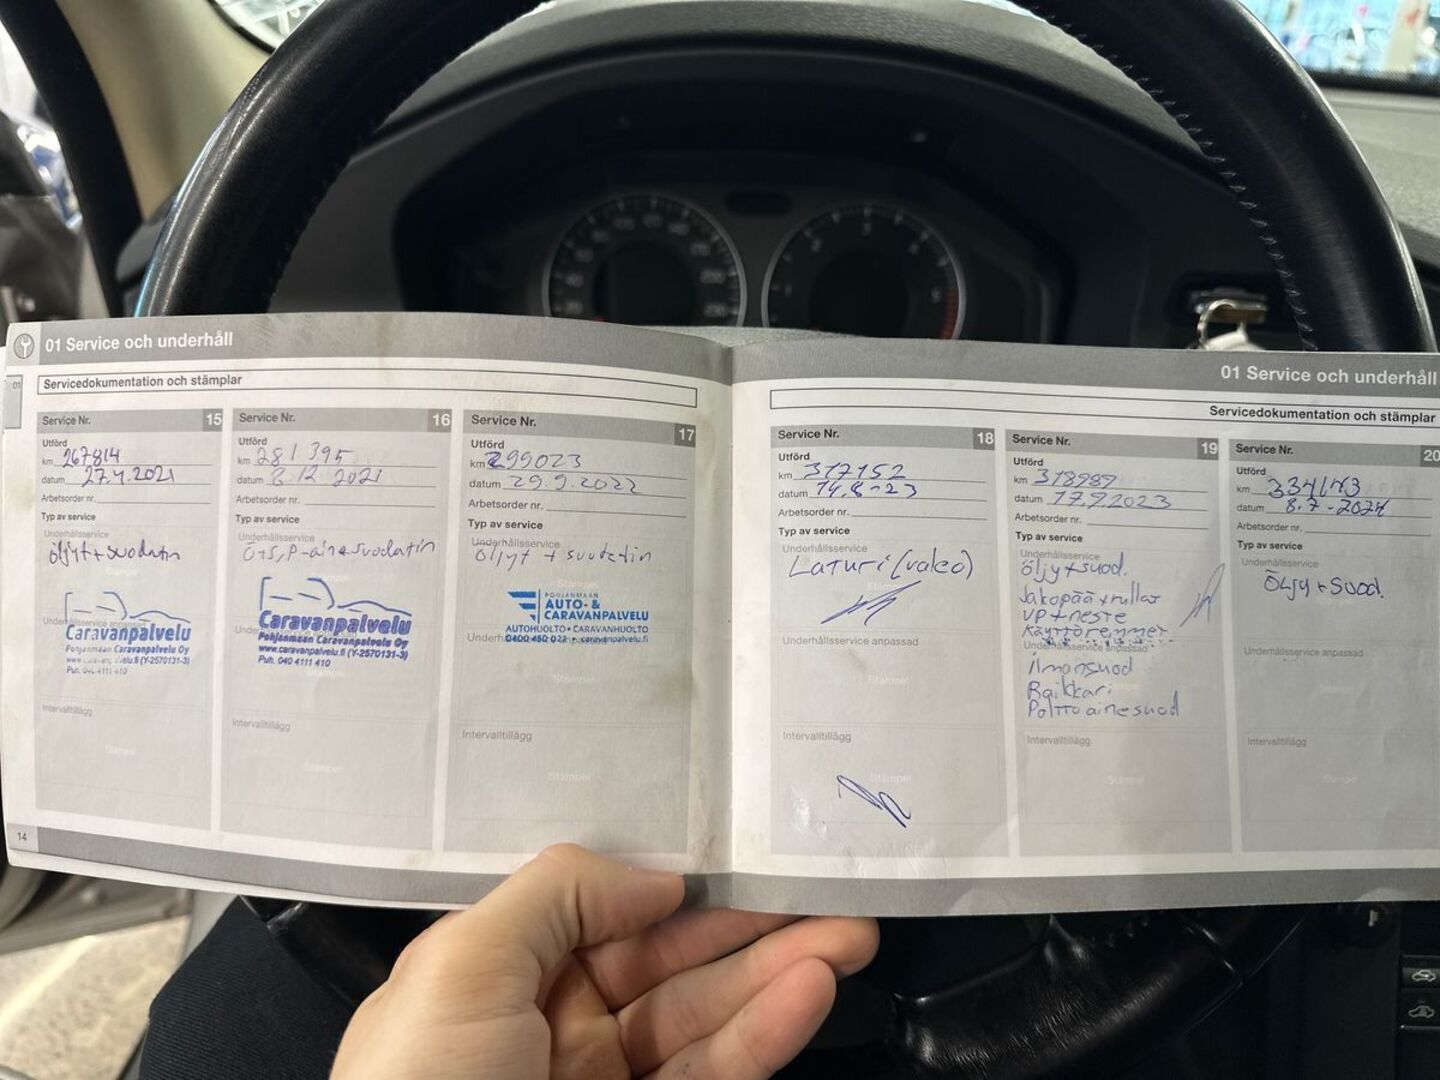 01 Service och underhåll
01
Servicedokumentation och stämplar
Service Nr. 15
Utförd
km 267814
datum 27.4.2021
Arbetsorder nr.
Typ av service
Underhållsservice
öljyt + suodatin
Underhållsservice anpassad
Caravanpalvelu
Pohjanmaan Caravanpalvelu Oy
www.caravanpalvelu.fi (Y-2570131-3)
Puh. 040 4111 410
Intervalltillägg
Stämpel
14
Service Nr. 16
Utförd
km 281395
datum 8.12 2021
Arbetsorder nr.
Typ av service
Underhållsservice
Ö+S, P-ainesuodatin
Caravanpalvelu
Pohjanmaan Caravanpalvelu Oy
www.caravanpalvelu.fi (Y-2570131-3)
Puh. 040 4111 410
Intervalltillägg
Stämpel
Service Nr. 17
Utförd
km 299023
datum 29.9.2022
Arbetsorder nr.
Typ av service
Underhållsservice
öljyt + suodatin
Stämpel
POHJANMAAN
AUTO- &
CARAVANPALVELU
AUTOHUOLTO • CARAVANHUOLTO
0400 450 022 • caravanpalvelu.fi
Stämpel
Intervalltillägg
Stämpel
01 Service och underhåll
Servicedokumentation och stämplar
Service Nr. 18
Utförd
km 317152
datum 14.8-23
Arbetsorder nr.
Typ av service
Underhållsservice
Laturi (valeo)
Underhållsservice anpassad
Stämpel
Intervalltillägg
Stämpel
Service Nr. 19
Utförd
km 318989
datum 17.9.2023
Arbetsorder nr.
Typ av service
Underhållsservice
öljy + suod.
Jakopää + rullat
VP + neste
Käyttöremmet
Underhållsservice anpassad
ilmansuod
Raikkari
Polttoainesuod
Intervalltillägg
Stämpel
Service Nr. 20
Utförd
km 334143
datum 8.7-2024
Arbetsorder nr.
Typ av service
Underhållsservice
Öljy + Suod.
Underhållsservice anpassad
Stämpel
Intervalltillägg
Stämpel